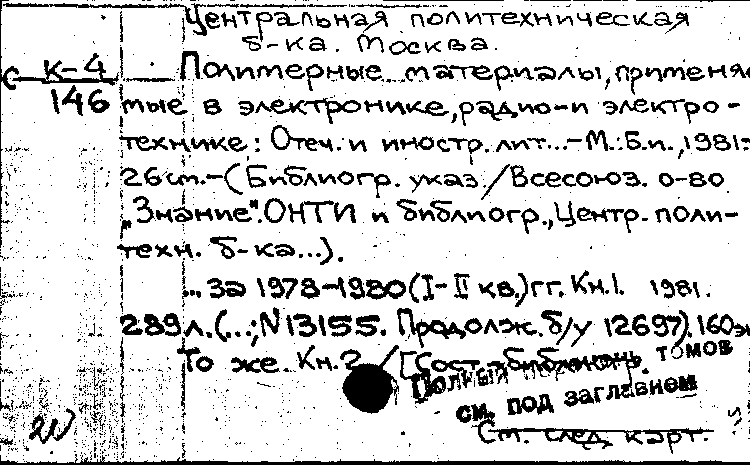 Центральная политехническая
б-ка. Москва.
С К-4 Полимерные материалы, применяе
146 мые в электронике, радио-и электро-
технике: Отеч. и иностр. лит...-М.:Б.и., 1981-
26см.-(Библиогр. указ./Всесоюз. о-во
"Знание".ОНТИ и библиогр., Центр. поли-
техн. б-ка...).
... За 1978-1980(I-II кв.)гг. Кн.1. 1981.
289л.(..;N13155. Продолж.б/у 12697).160э
То же. Кн.2 /[Сост.
Полный перечень томов
см. под заглавием
См. след. карт.